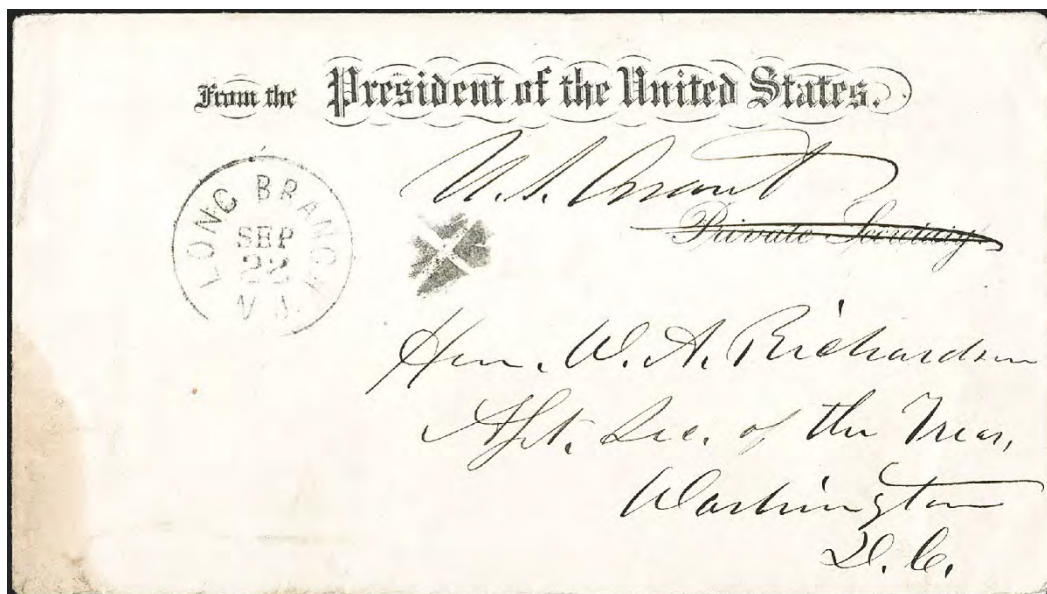 From the President of the United States.
U. S. Grant
Private Secretary
LONG BRANCH
SEP
22
N.J.
Hon. W. A. Richardson
Asst. Sec. of the Treas,
Washington
D. C.